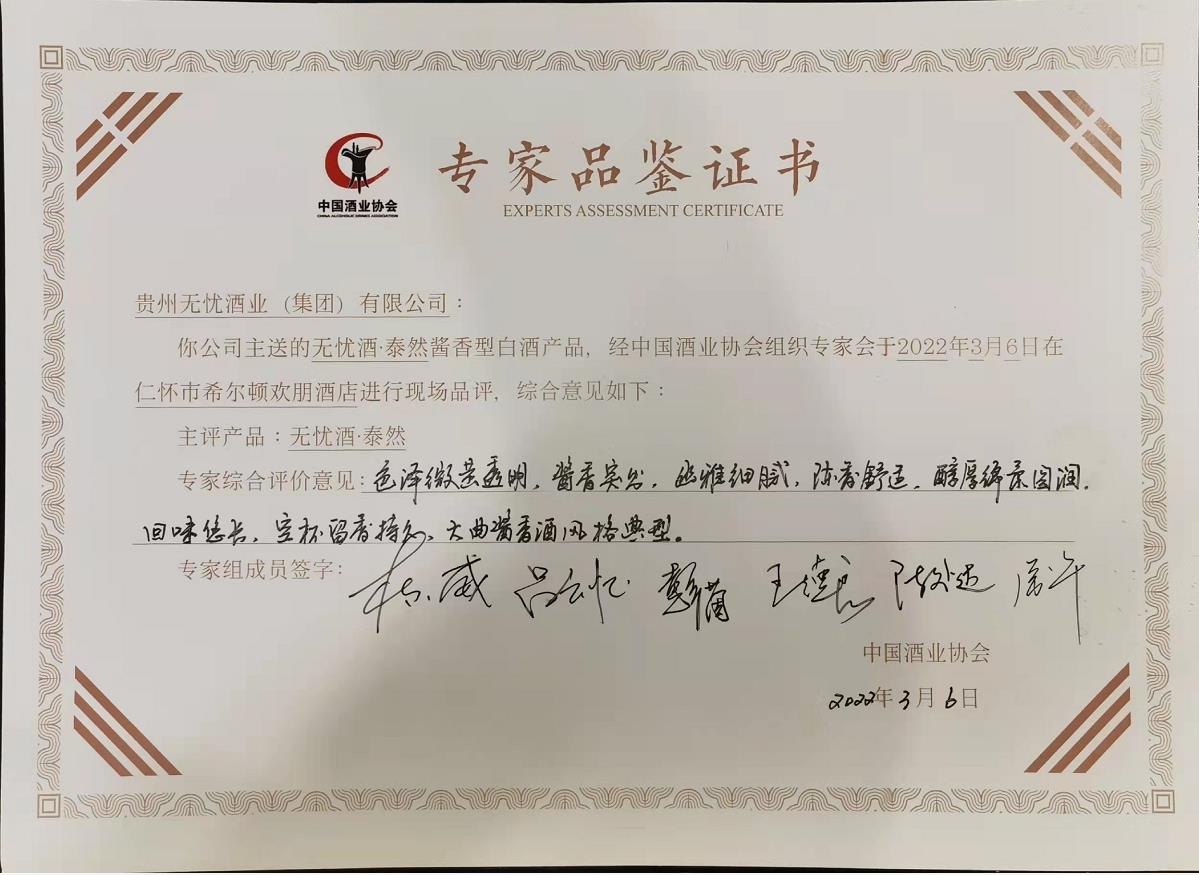 中国酒业协会
CHINA ALCOHOLIC DRINKS ASSOCIATION
专家品鉴证书
EXPERTS ASSESSMENT CERTIFICATE
贵州无忧酒业（集团）有限公司：
你公司主送的无忧酒·泰然酱香型白酒产品，经中国酒业协会组织专家会于2022年3月6日在
仁怀市希尔顿欢朋酒店进行现场品评，综合意见如下：
主评产品：无忧酒·泰然
专家综合评价意见：色泽微黄透明，酱香突出，幽雅细腻，陈香舒适，醇厚绵柔圆润，
回味悠长，空杯留香持久，大曲酱香酒风格典型。
专家组成员签字：
中国酒业协会
2022年3月6日